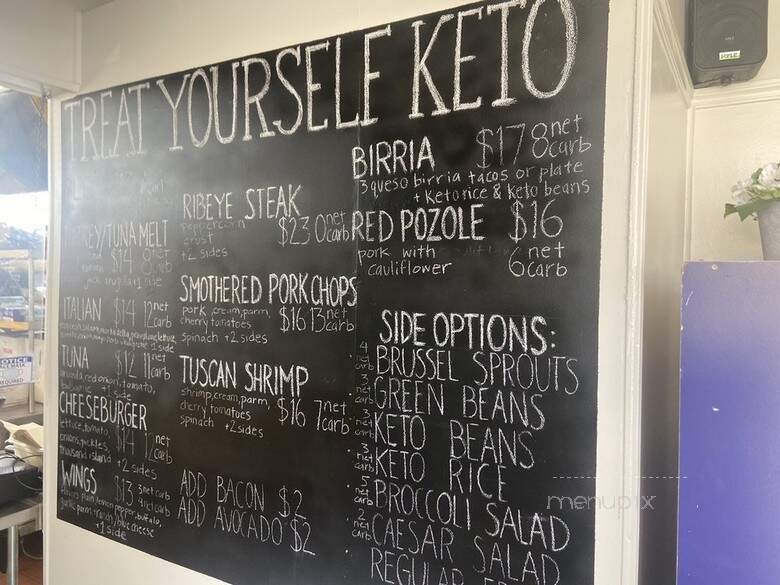 TREAT YOURSELF KETO
TUNA MELT
$14 8
ITALIAN $14 12 net carb
1 side
TUNA $12 11 net carb
red onion, tomato,
1 side
CHEESEBURGER
lettuce, tomato, $14 12 net carb
onions, pickles,
thousand island +2 sides
WINGS $13 3 net carb
plain, lemon pepper, buffalo,
garlic parm, ranch, blue cheese
+1 side
RIBEYE STEAK
peppercorn
crust $23 0 net carb
+2 sides
SMOTHERED PORK CHOPS
pork, cream, parm, $16 13 net carb
cherry tomatoes
spinach +2 sides
TUSCAN SHRIMP
shrimp, cream, parm, $16 7 net carb
cherry tomatoes
spinach +2 sides
ADD BACON $2
ADD AVOCADO $2
BIRRIA $17 8 net carb
3 queso birria tacos or plate
+ Keto rice & keto beans
RED POZOLE $16
pork with 6 net carb
cauliflower
SIDE OPTIONS:
4 net carb BRUSSEL SPROUTS
3 net carb GREEN BEANS
3 net carb KETO BEANS
3 net carb KETO RICE
5 net carb BROCCOLI SALAD
2 net carb CAESAR SALAD
REGULAR
menupix